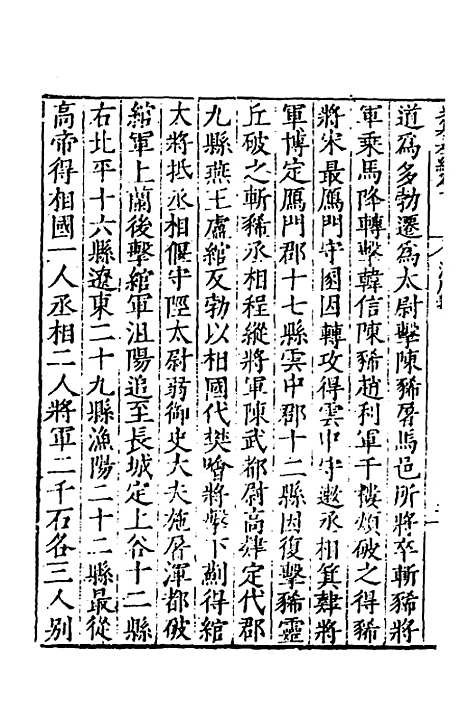 道爲多勃遷爲太尉擊陳豨屠馬邑所將卒斬豨將
軍乘馬降轉擊韓信陳豨趙利軍于樓煩破之得豨
將宋最鴈門守圂因轉攻得雲中守遬丞相箕肄將
軍博定鴈門郡十七縣雲中郡十二縣因復擊豨靈
丘破之斬豨丞相程縱將軍陳武都尉高肆定代郡
九縣燕王盧綰反勃以相國代樊噲將擊下薊得綰
大將抵丞相偃守陘太尉弱御史大夫施屠渾都破
綰軍上蘭後擊綰軍沮陽追至長城定上谷十二縣
右北平十六縣遼東二十九縣漁陽二十二縣最從
高帝得相國一人丞相二人將軍二千石各三人別